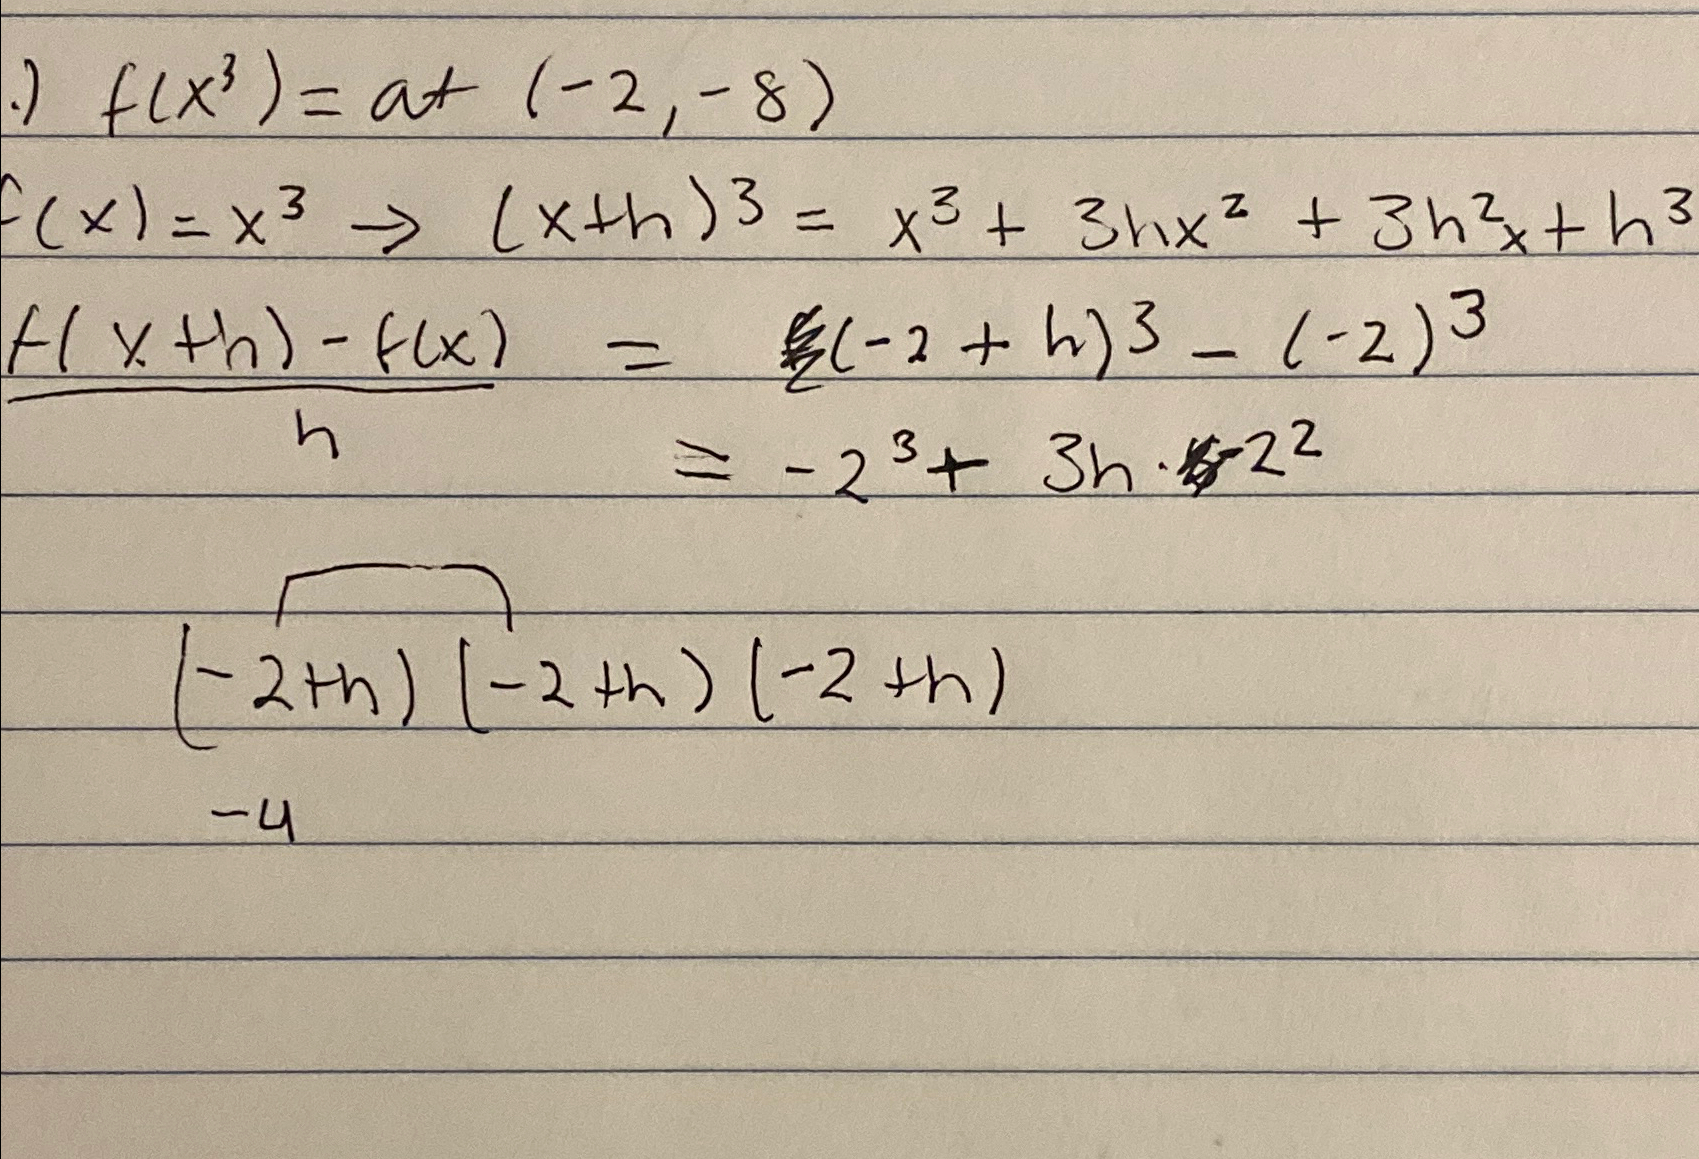 .) f(x³) = at (-2, -8)
f(x) = x³ → (x+h)³ = x³ + 3hx² + 3h²x + h³
f(x+h) - f(x) = (-2 + h)³ - (-2)³
h
= -2³ + 3h · -2²
(-2+h) (-2+h) (-2+h)
-4